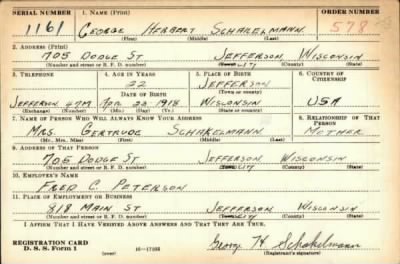 SERIAL NUMBER 1. NAME (Print) ORDER NUMBER
1161 GEORGE HERBERT SCHAKELMANN 578
(First) (Middle) (Last)
2. ADDRESS (Print)
705 DODGE ST JEFFERSON WISCONSIN
(Number and street or R. F. D. number) (Town) (County) (State)
3. TELEPHONE 4. AGE IN YEARS 5. PLACE OF BIRTH 6. COUNTRY OF CITIZENSHIP
22 JEFFERSON
DATE OF BIRTH (Town or county)
JEFFERSON 47M APR 23 1918 WISCONSIN USA
(Exchange) (Number) (Mo.) (Day) (Yr.) (State or country)
7. NAME OF PERSON WHO WILL ALWAYS KNOW YOUR ADDRESS 8. RELATIONSHIP OF THAT PERSON
MRS. GERTRUDE SCHAKELMANN MOTHER
(Mr., Mrs., Miss) (First) (Middle) (Last)
9. ADDRESS OF THAT PERSON
705 DODGE ST JEFFERSON WISCONSIN
(Number and street or R. F. D. number) (Town) (County) (State)
10. EMPLOYER'S NAME
FRED C. PETERSON
11. PLACE OF EMPLOYMENT OR BUSINESS
818 MAIN ST JEFFERSON WISCONSIN
(Number and street or R. F. D. number) (Town) (County) (State)
I AFFIRM THAT I HAVE VERIFIED ABOVE ANSWERS AND THAT THEY ARE TRUE.
REGISTRATION CARD
D. S. S. Form 1 (over) 16—17105 George H. Schakelmann
(Registrant's signature)